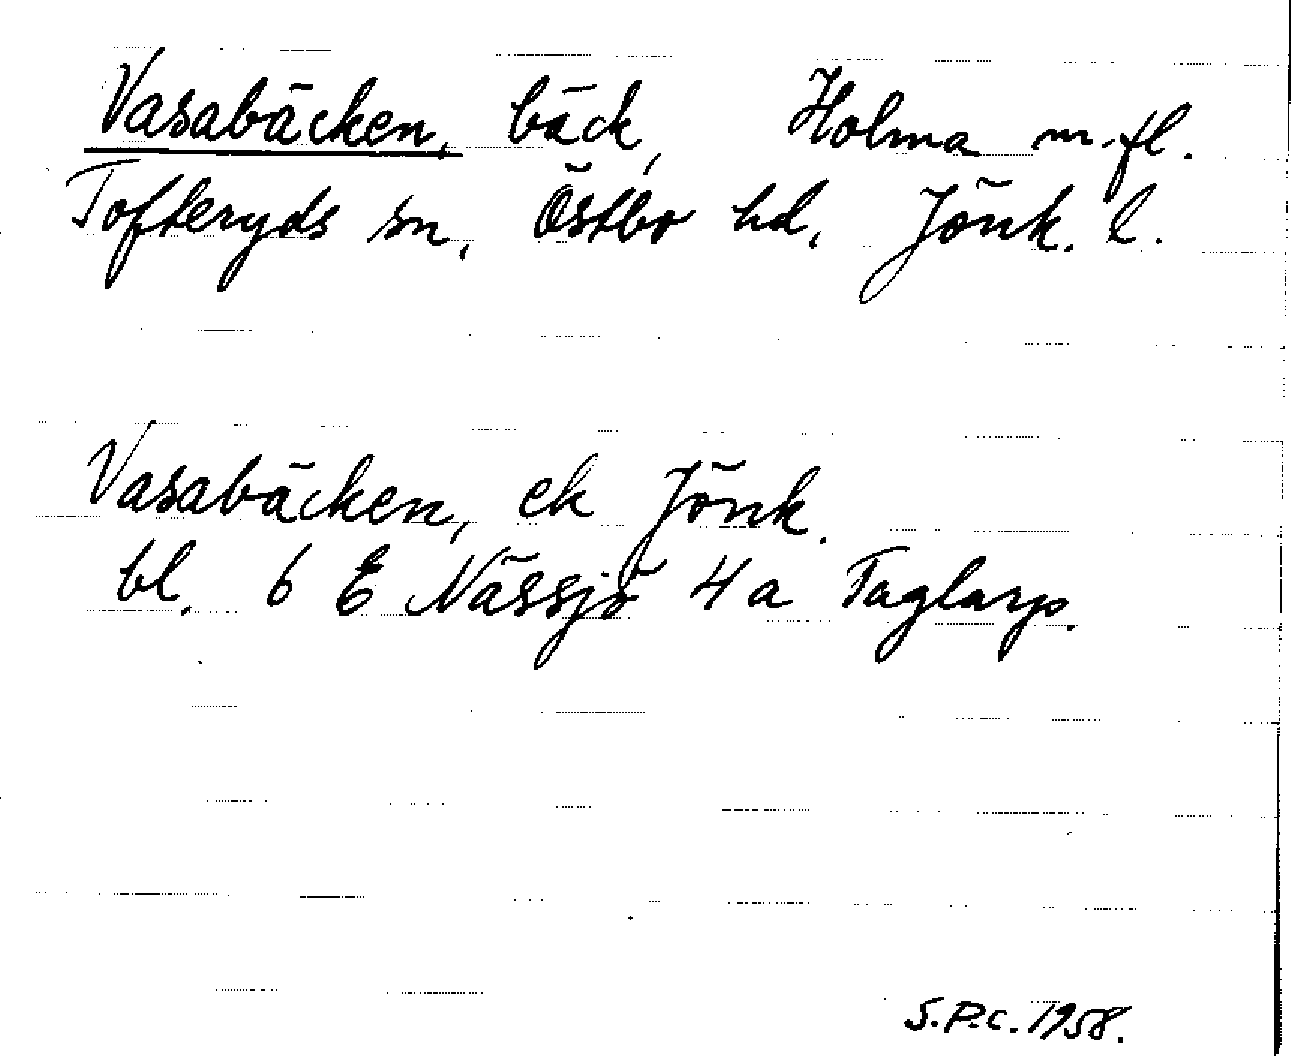 Vasabäcken, bäck, Holma m.fl.
Tofteryds sn, Östbo hd, Jönk. l.
Vasabäcken, ek Jönk.
bl. 6 E Nässjö 4 a Taglarp.
S.P.C. 1958.